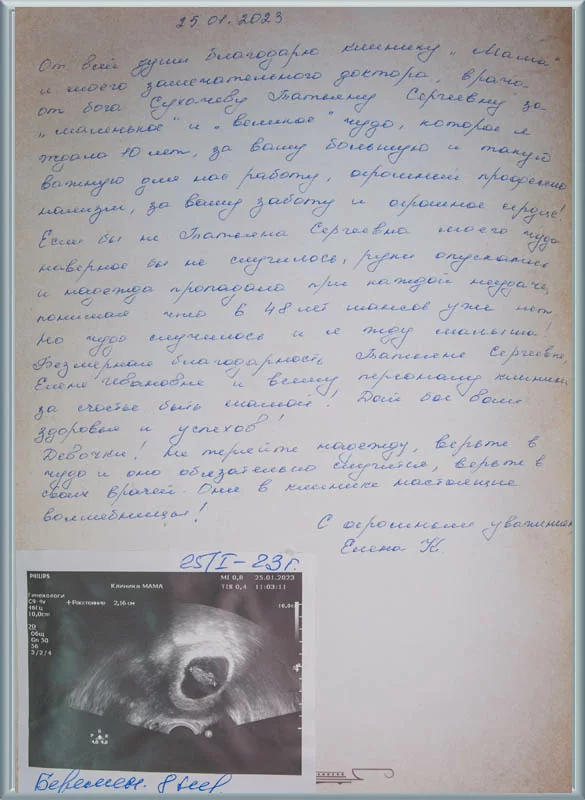 25.01.2023
От всей души благодарю клинику „Мама"
и моего замечательного доктора, врача
от бога Сухачеву Татьяну Сергеевну за
„маленькое" и „великое" чудо, которое я
ждала 10 лет, за вашу большую и такую
важную для нас работу, огромный професио
нализм, за вашу заботу и огромное сердце!
Если бы не Татьяна Сергеевна моего чуда
наверное бы не случилось, руки опускались
и надежда пропадала при каждой неудаче,
понимая что в 48 лет шансов уже нет
Но чудо случилось и я жду малыша!
Безмерная благодарность Татьяне Сергеевне,
Елене Ивановне и всему персоналу клиники
за счастье быть мамой! Дай бог вам
здоровья и успехов!
Девочки! Не теряйте надежду, верьте в
чудо и оно обязательно случится, верьте в
своих врачей. Они в клинике настоящие
волшебницы!
С огромным уважением
Елена К.
25/I-23г.
PHILIPS
Клиника МАМА
MI 0,8 25.01.2023
TIS 0,4 11:03:11
Гинекологи
C9-4v
46Гц
10,0см
+Расстояние 2,16 см
10,0
2D
Общ
Gn 50
56
3/2/4
Беремен. 8 нед.